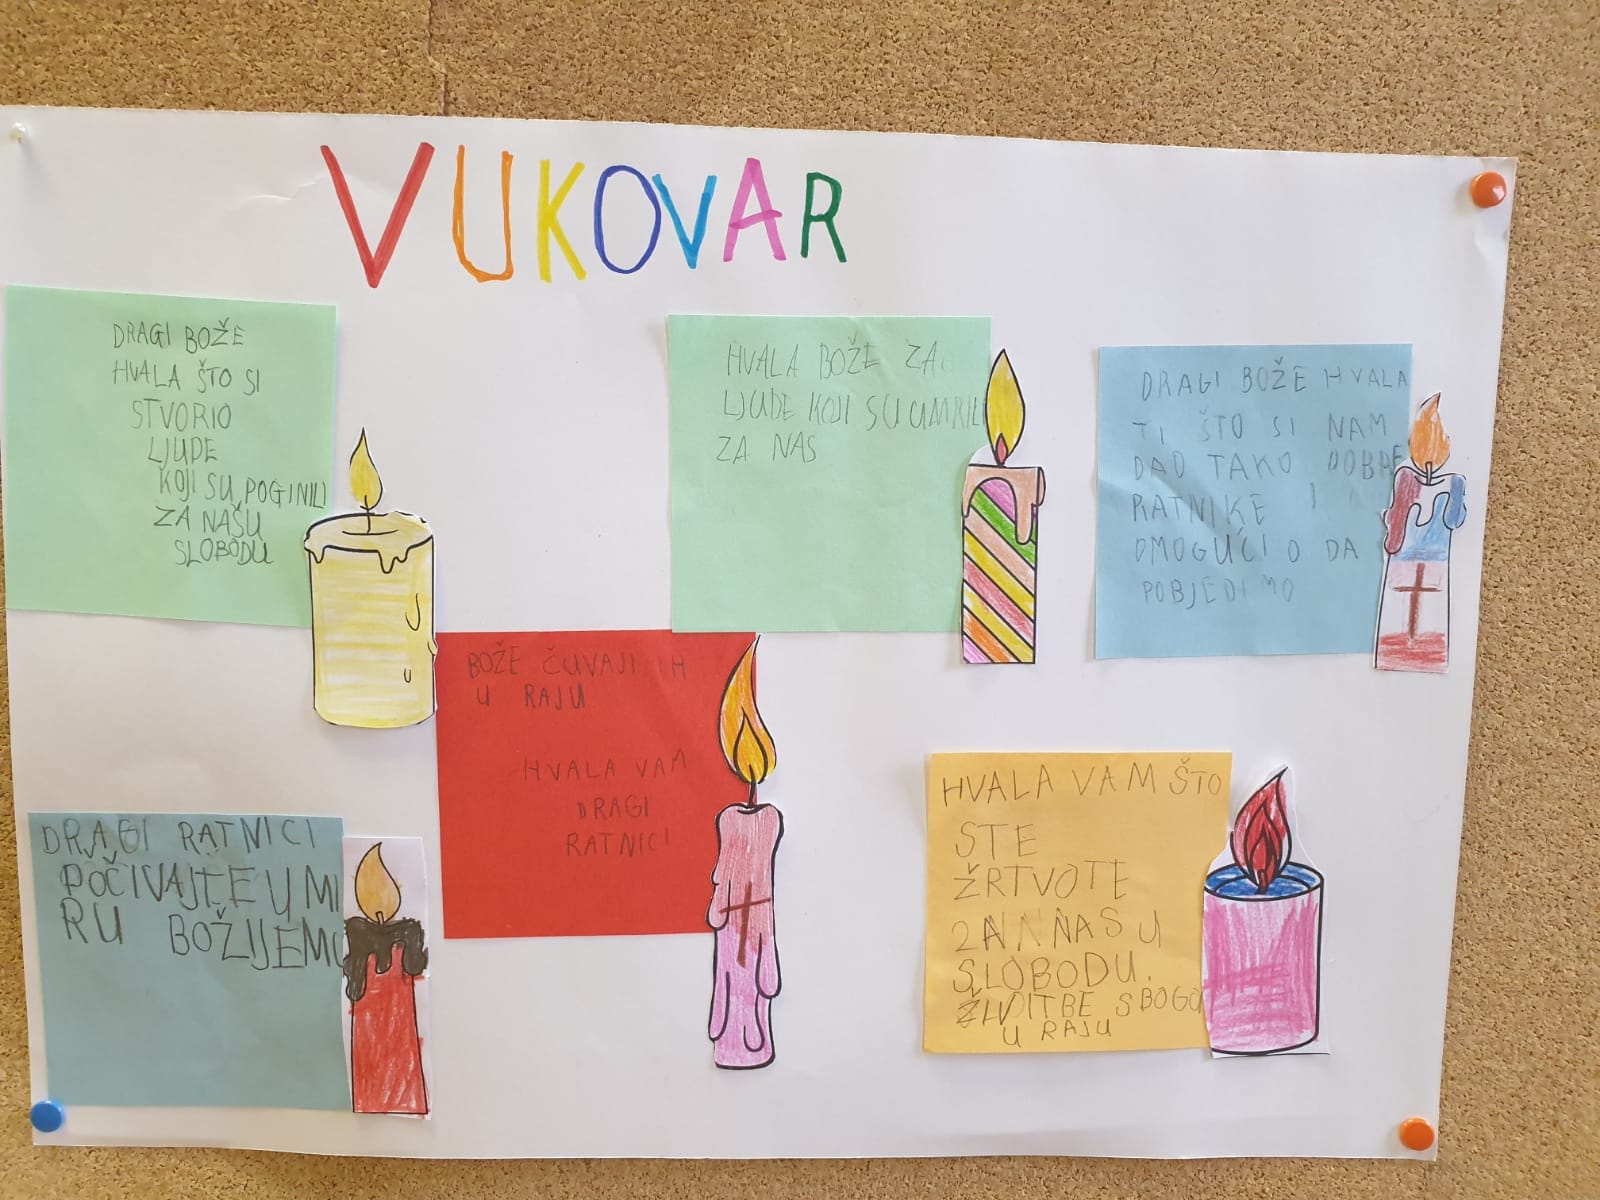 VUKOVAR
DRAGI BOŽE
HVALA ŠTO SI
STVORIO
LJUDE
KOJI SU POGINILI
ZA NAŠU
SLOBODU
HVALA BOŽE ZA
LJUDE KOJI SU UMRILI
ZA NAS
DRAGI BOŽE HVALA
TI ŠTO SI NAM
DAO TAKO DOBRE
RATNIKE I
OMOGUĆIO DA
POBJEDIMO
BOŽE ČUVAJ IH
U RAJU
HVALA VAM
DRAGI
RATNICI
DRAGI RATNICI
POČIVAJTE U MI
RU BOŽIJEMU
HVALA VAM ŠTO
STE
ŽRTVOTE
ZA NAS U
SLOBODU.
S BOGO
U RAJU